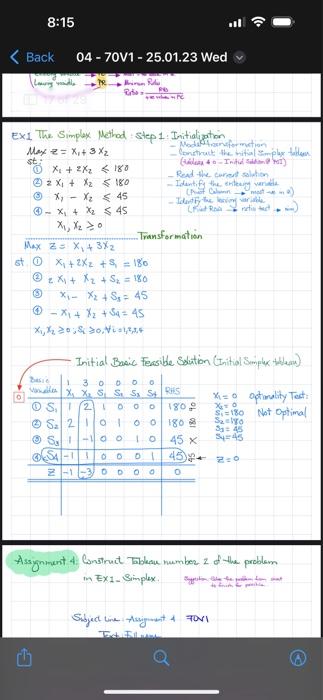 8:15
Back
04 - 70V1 - 25.01.23 Wed
Leaving variable → PR → Minimum Ratio
Ratio = RHS
17 of 23
EX1 The Simplex Method: Step 1: Initialization
Max Z = X1 + 3X2
st:
① X1 + 2X2 ≤ 180
② 2X1 + X2 ≤ 180
③ X1 - X2 ≤ 45
④ -X1 + X2 ≤ 45
X1, X2 ≥ 0
- Model transformation
- Construct the initial simplex tableau
(tableau # 0 - Initial Solution
- Read the current solution
- Identify the entering variable
(Pivot Column → most -ve in Z)
- Identify the leaving variable
(Pivot Row → ratio test → min)
Transformation
Max Z = X1 + 3X2
st. ① X1 + 2X2 + S1 = 180
② 2X1 + X2 + S2 = 180
③ X1 - X2 + S3 = 45
④ -X1 + X2 + S4 = 45
X1, X2 ≥ 0, Si ≥ 0, ∀i = 1,2,3,4
Initial Basic Feasible Solution (Initial Simplex tableau)
Basic 1 3 0 0 0 0
Variables X1 X2 S1 S2 S3 S4 RHS
0
① S1 1 2 1 0 0 0 180 90
② S2 2 1 0 1 0 0 180 180
③ S3 1 -1 0 0 1 0 45 X
④ S4 -1 1 0 0 0 1 45 45 ←
Z -1 -3 0 0 0 0 0
X1 = 0
X2 = 0
S1 = 180
S2 = 180
S3 = 45
S4 = 45
Z = 0
Optimality Test:
Not Optimal
Assignment 4: Construct Tableau number 2 of the problem
in EX1 - Simplex.
Suggestion: Solve the problem from start
to finish for practice.
Subject Line: Assignment 4 70V1
Text: Full name